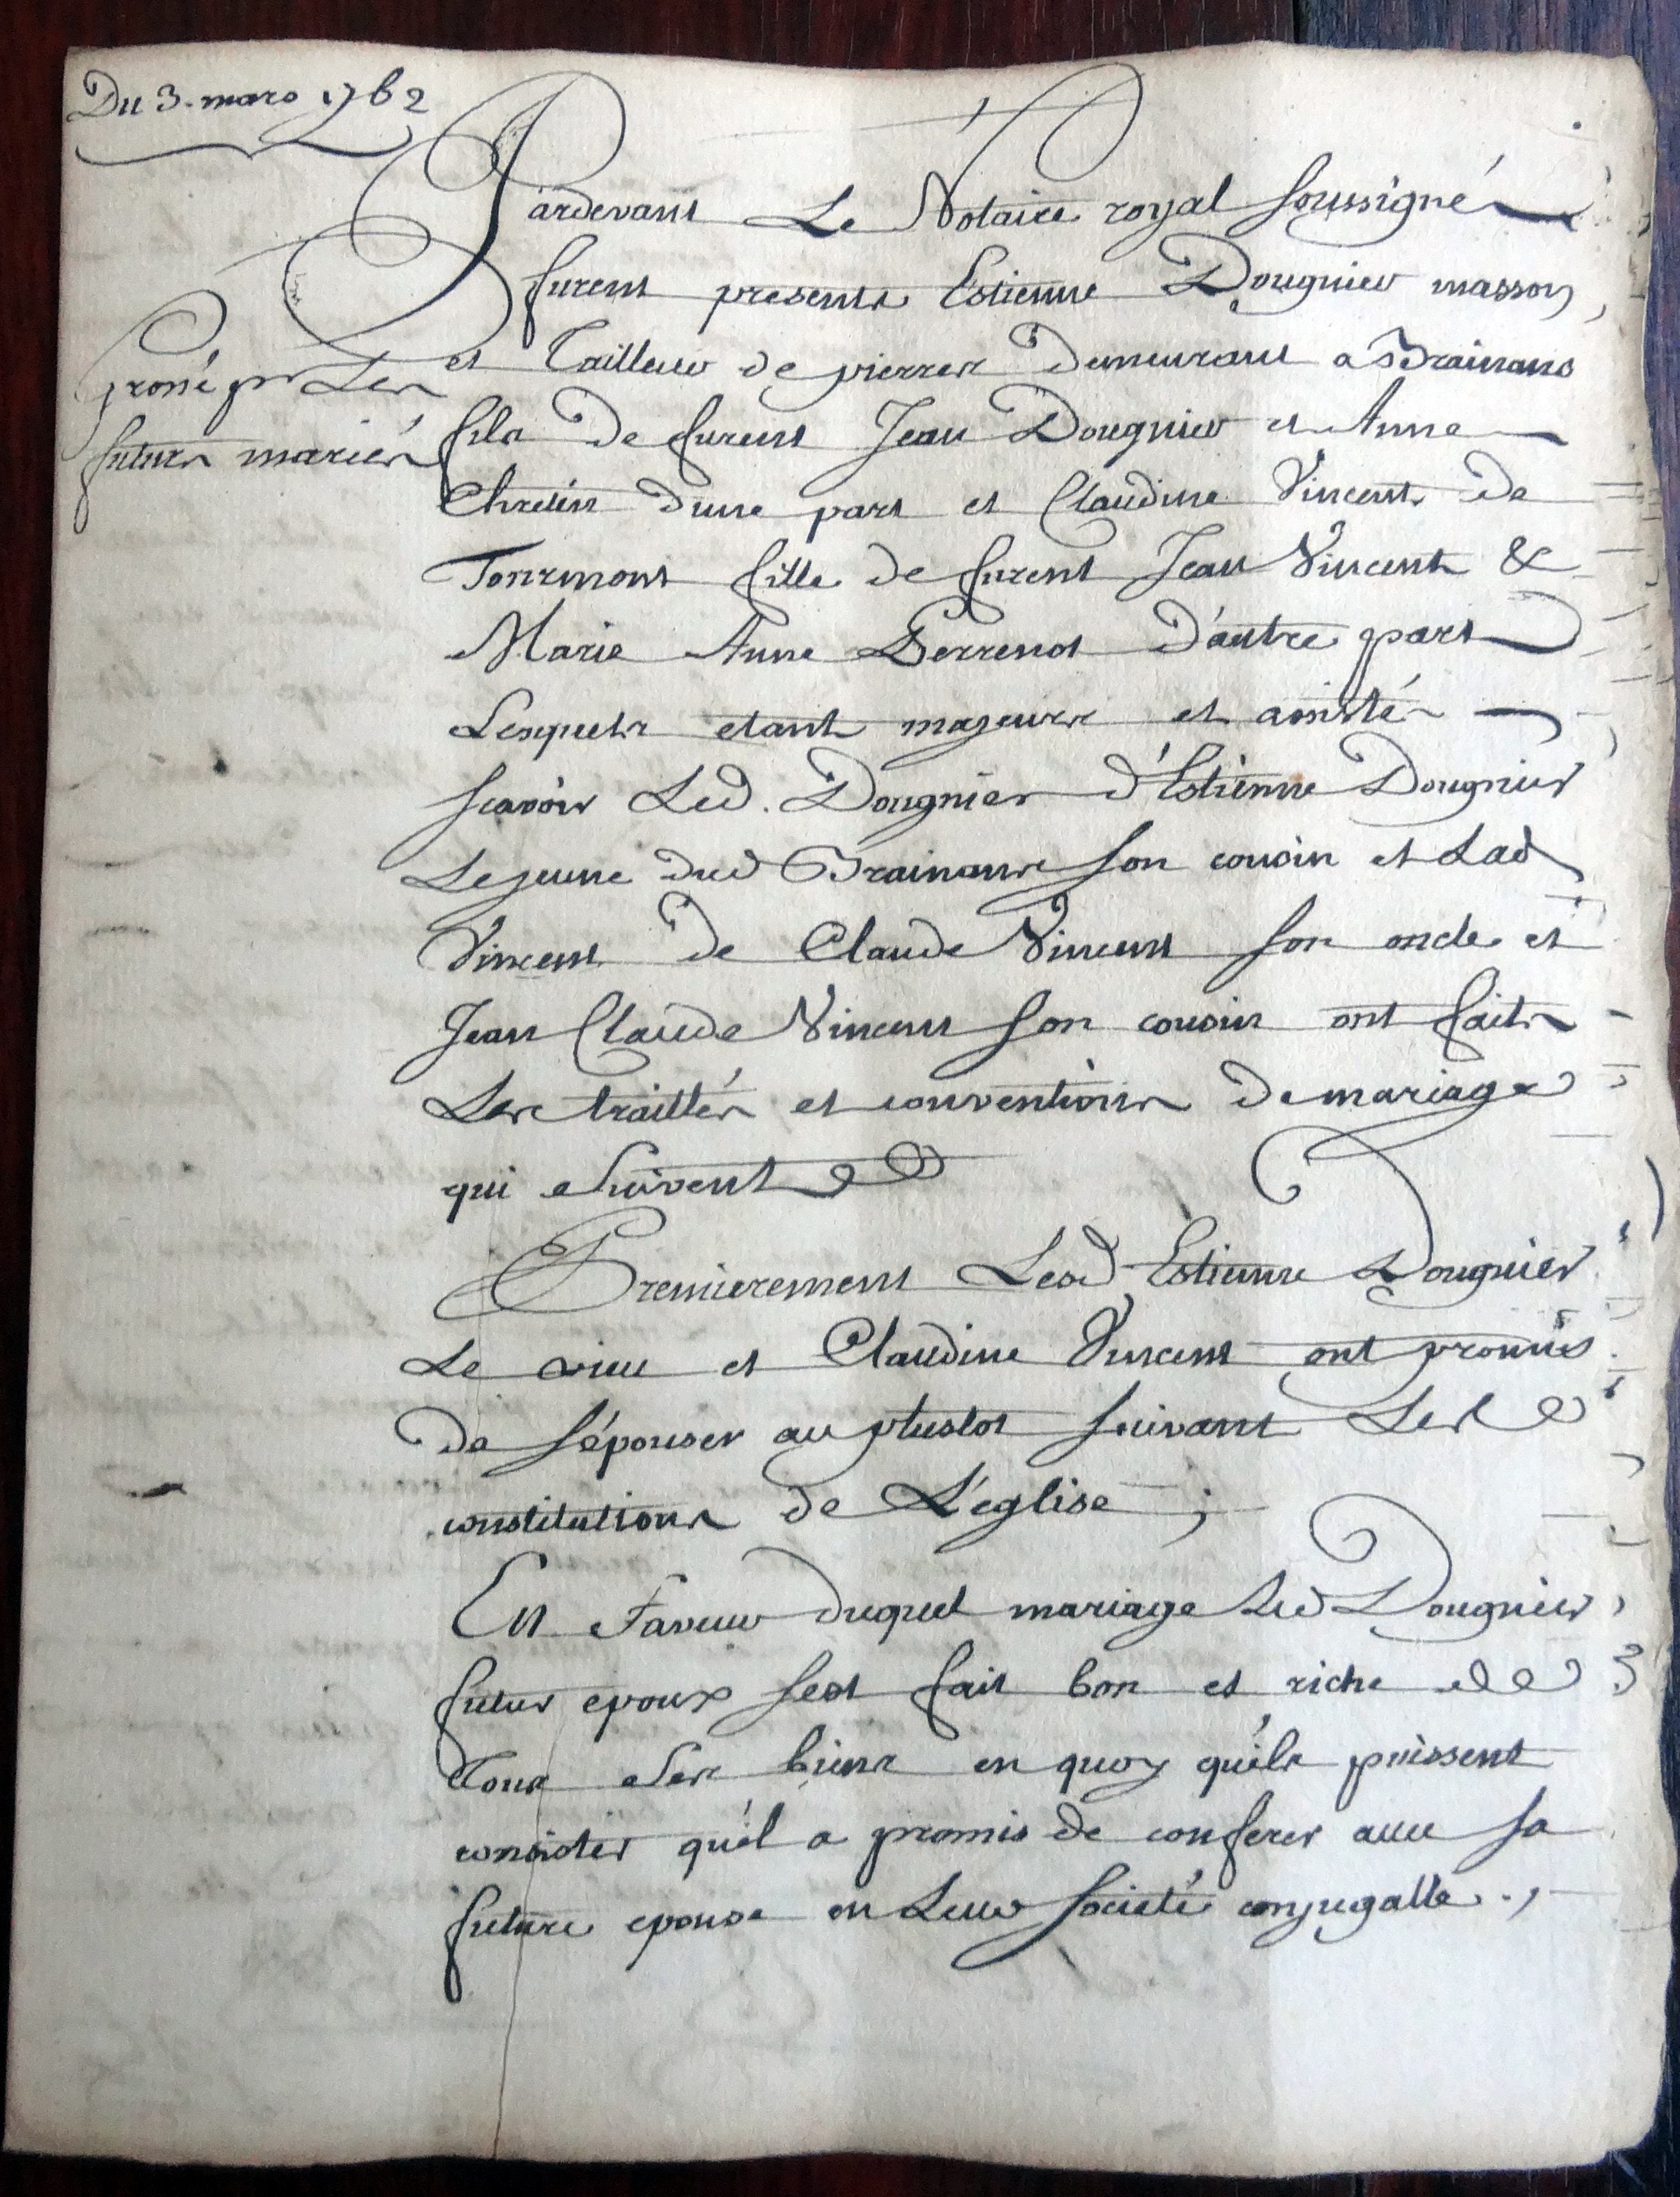 Du 3. mars 1762
Pardevant Le Notaire royal soussigné
furent presents Estienne Dougnier masson
et Tailleur de pierres demeurant a Brainans
grossé pr Les
futurs mariés
fils de furent Jean Dougnier et Anne
Chretin dune part et Claudine Vincent de
Tourmont fille de furent Jean Vincent &
Marie Anne Perrenot d'autre part
Lesquels etant majeurs et assistés
scavoir Led. Dougnier d'Estienne Dougnier
Lejeune dud Brainans son cousin et Lad
Vincent de Claude Vincent son oncle et
Jean Claude Vincent son cousin ont faits
Les traittés et conventions de mariage
qui suivent
Premierement Lesd Estienne Dougnier
Le vieu et Claudine Vincent ont promis
de s'épouser au plustot suivant Les
constitutions de L'eglise ;
En faveur duquel mariage Led Dougnier
futur epoux sest fait bon et riche de
Tous ses biens en quoy qu'ils puissent
consister qu'il a promis de conferer avec sa
future epouse en Leur societé conjugalle .,